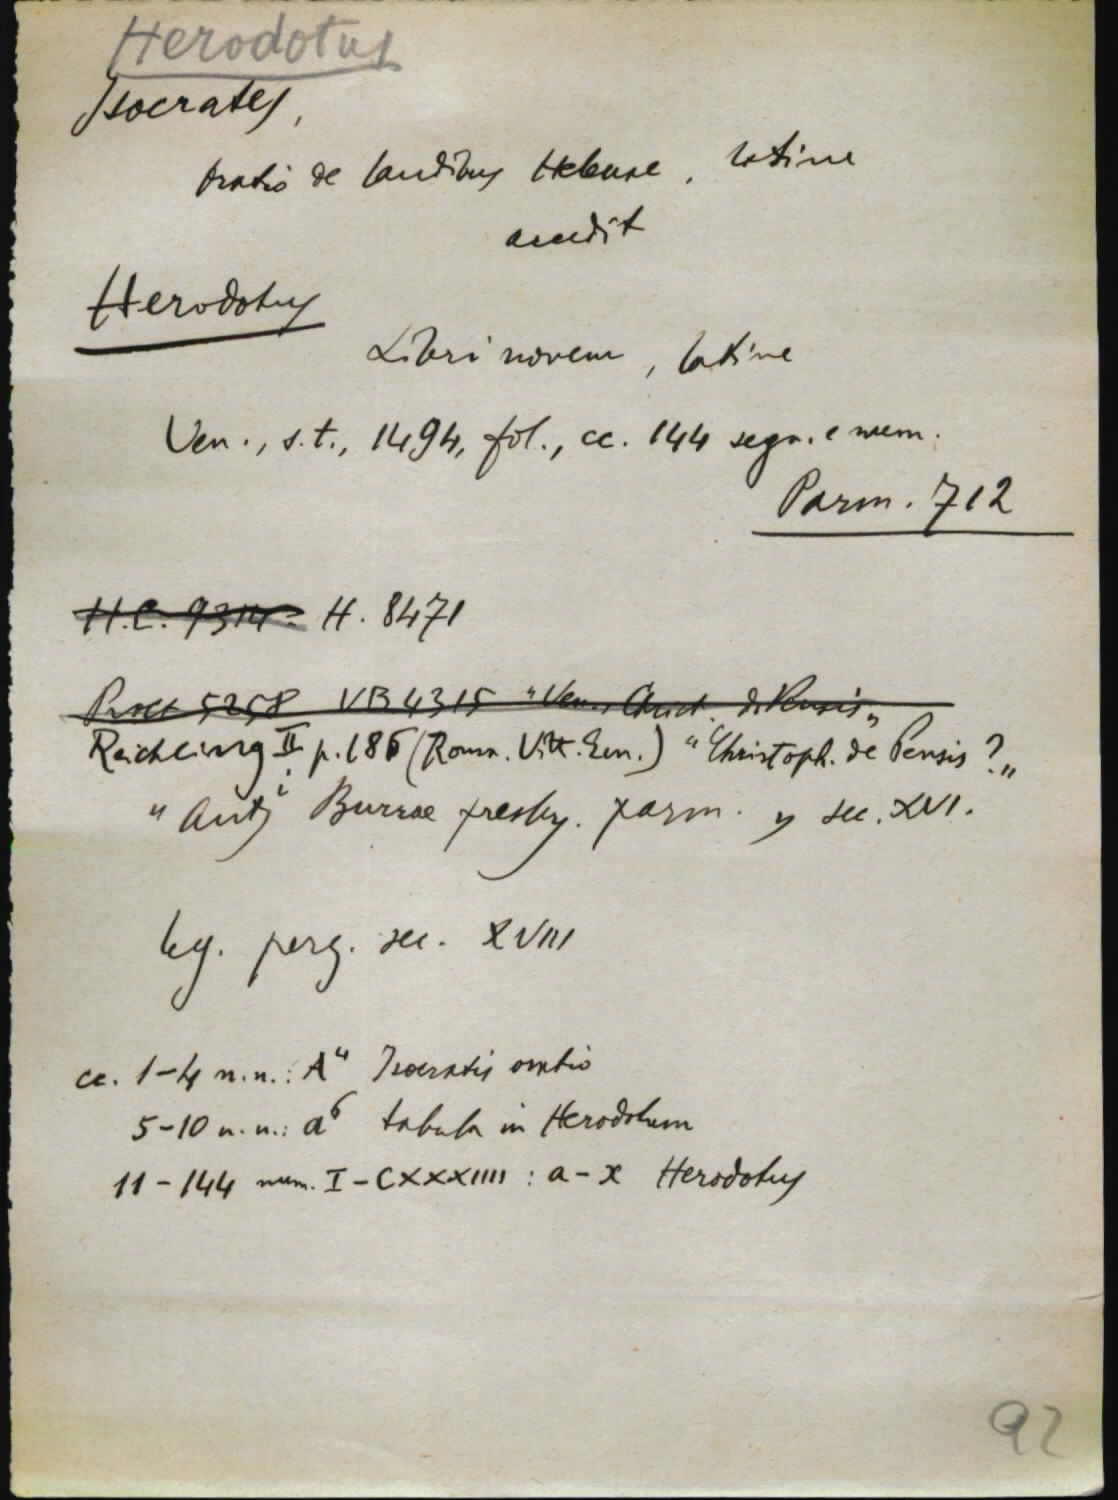 Herodotus
Isocrates,
Oratio de laudibus Helenae, latine
accedit
Herodotus
Libri novem, latine
Ven., s.t., 1494, fol., cc. 144 segn. e num.
Parm. 712
H.C. 9314. H. 8471
Proct 5258 VB 4315 "Ven., Christ. de Pensis„
Reichling II p. 186 (Roma. Vitt. Em.) "Christoph. de Pensis?„
"Antⁱ Burrae presby. parm. „ sec. XVI.
leg. perg. sec. XVIII
cc. 1-4 n.n.: A⁴ Isocratis oratio
5-10 n.n.: a⁶ tabula in Herodotum
11-144 num. I-CXXXIIII: a-x Herodotus
92